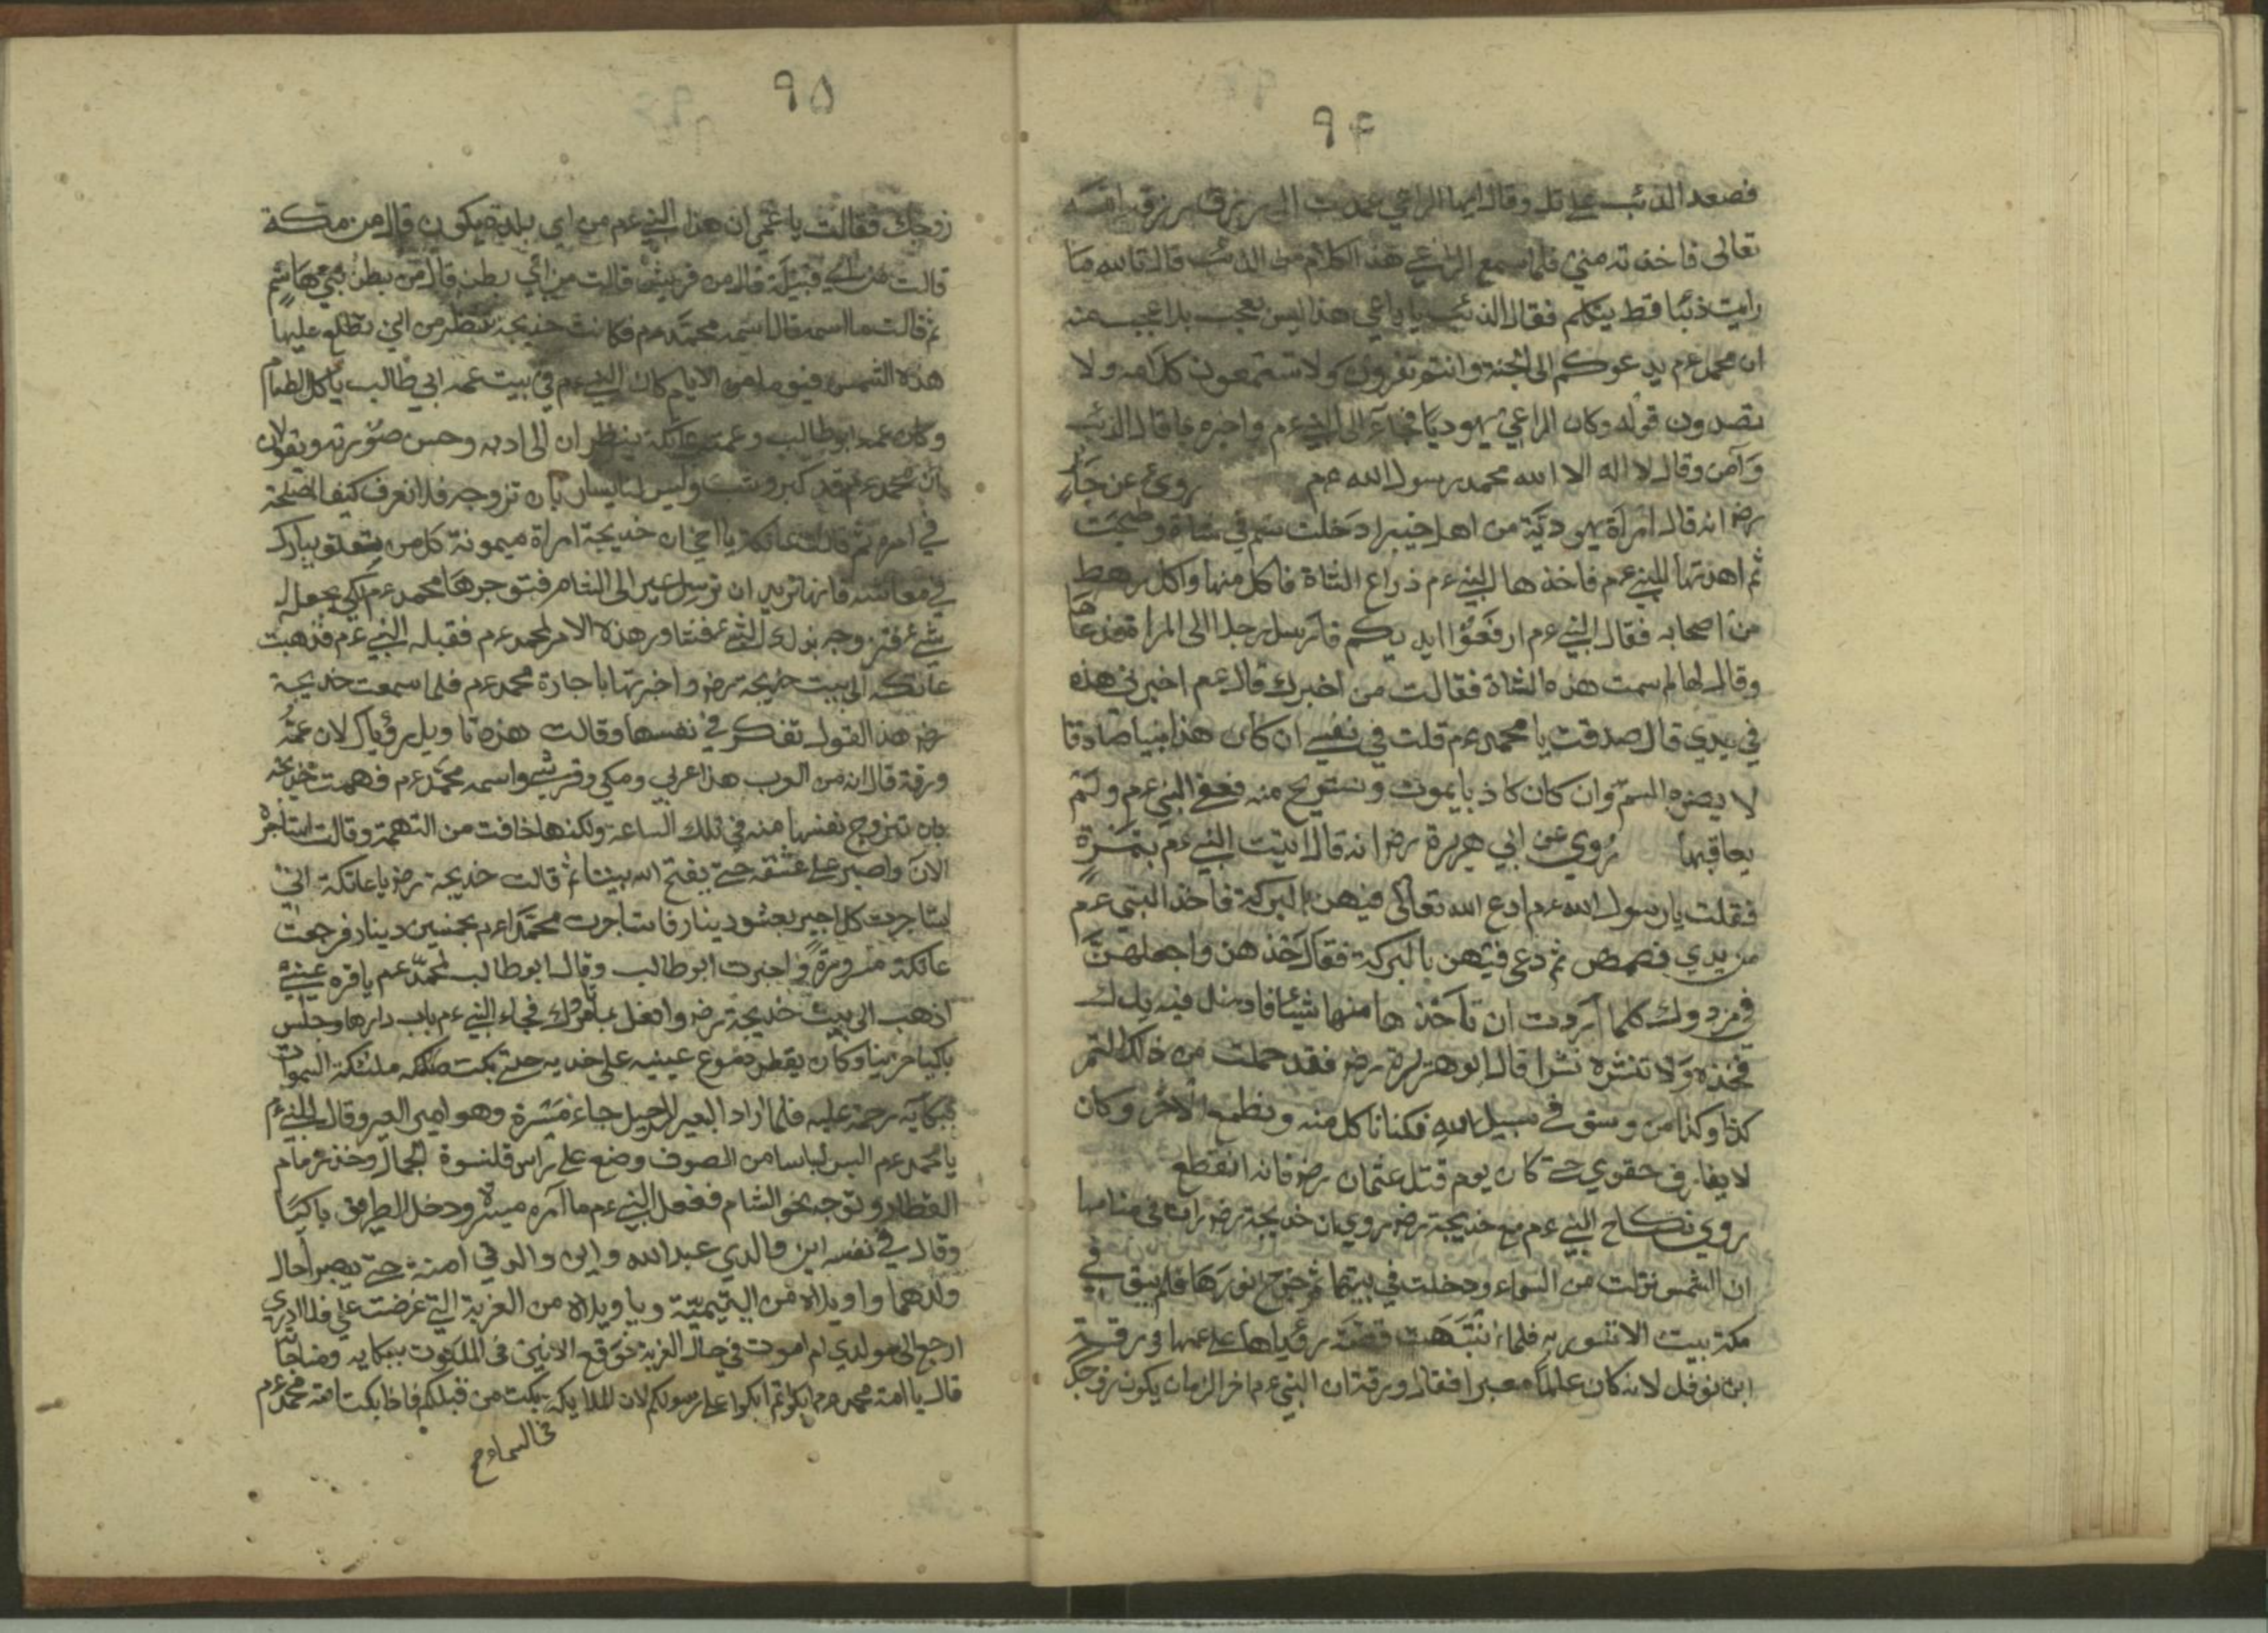 ٩٤
فصعد الذئب على تل وقال ايها الراعي عمدت الى رزق رزقه الله
تعالى فاخذته مني فلما سمع الراعي هذا الكلام من الذئب قال تالله ما
رايت ذئبا قط يتكلم فقال الذئب يا راعي هذا ليس بعجب بل اعجب منه
ان محمد عم يدعوكم الى الجنة وانتم تفرون ولا تستمعون كلامه ولا
تصدون قوله وكان الراعي يهوديا فجاء الى النبي عم واخبره بما قال الذئب
وآمن وقال لا اله الا الله محمد رسول الله عم روي عن جابر
رضر انه قال امرأة يهودية من اهل خيبر ادخلت سم في شاة وصحبت
ثم اهدتها للنبي عم فاخذها النبي عم ذراع الشاة فاكل منها واكل رهط
من اصحابه فقال النبي عم ارفعوا ايديكم فارسل رجلا الى المراة فدعاها
وقال لها لم سمت هذه الشاة فقالت من اخبرك قال عم اخبرني هذه
في يدي قال صدقت يا محمد عم قلت في نفسي ان كان هذا نبيا صادقا
لا يضره السم وان كان كاذبا يموت ونستريح منه فعفي النبي عم ولم
يعاقبها روي عن ابي هريرة رضر انه قال اتيت النبي عم بتمرة
فقلت يا رسول الله عم ادع الله تعالى فيهن البركة فاخذ النبي عم
من يدي فصمص ثم دعى فيهن بالبركة فقال خذهن واجعلهن
في مزدوك كلما اردت ان تأخذها منها شيئا فادخل فيه يدك
فخذه ولا تنشره نشرا قال ابو هريرة رضر فقد حملت من ذلك التمر
كذا وكذا من وسق في سبيل الله فكنا ناكل منه ونطعم الآخر وكان
لا يفارق حقوي حتى كان يوم قتل عثمان رضر فانه انقطع
روي نكاح النبي عم مع خديجة رضر روي ان خديجة رضر رات في منامها
ان الشمس نزلت من السماء ودخلت في بيتها ثم خرج نورها فلم يبق في
مكة بيت الا تنور به فلما انتبهت قصة رؤياها على عمها ورقة
ابن نوفل لانه كان علما معبرا فقال ورقة ان النبي عم اخر الزمان يكون زوجك
٩٥
زوجك فقالت يا عمي ان هذا النبي عم من اي بلدة يكون قال من مكة
قالت من اي قبيلة قال من قريش قالت من اي بطن قال من بطن بني هاشم
ثم قالت ما اسمه قال اسمه محمد عم فكانت خديجة تنظر من اين تطلع عليها
هذه الشمس فيوما من الايام كان النبي عم في بيت عمه ابي طالب يأكل الطعام
وكان عمه ابو طالب وعمته عاتكة ينظران الى ادبه وحسن صورته ويقولان
ان محمد عم قد كبر وشب وليس لنا يسار بان تزوجه فلا نعرف كيف المصلحة
في امره ثم قالت عاتكة يا اخي ان خديجة امراة ميمونة كل من يتعلق يبارك
في معاشه فانها تريد ان ترسل عير الى الشام فتوجرها محمد عم لكي يجعل له
شيء فتزوجه بذلك الشيء فشاور هذه الامر لمحمد عم فقبله النبي عم فذهبت
عاتكة الى بيت خديجة رضر واخبرتها باجارة محمد عم فلما سمعت خديجة
رضر هذا القول تفكر في نفسها وقالت هذه تاويل رؤياك لان عمه
ورقة قال انه من العرب هذا عربي ومكي وقرشي واسمه محمد عم فهمت خديجة
بان تتزوج نفسها منه في تلك الساعة ولكنها خافت من التهمة وقالت استاجره
الآن واصبر على عشقه حتى يفتح الله بيننا ثم قالت خديجة رضر يا عاتكة اني
استاجرت كل اجير بعشر دينار فاستاجرت محمدا عم بخمسين دينار فرجعت
عاتكة مسرورة واخبرت ابو طالب وقال ابو طالب لمحمد عم يا قرة عيني
اذهب الى بيت خديجة رضر وافعل بما امرك فجاء النبي عم باب دارها وجلس
باكيا حزينا وكان يقطر دموع عينيه على خديه حتى بكت ملئكة السموات
ببكائه رحمة عليه فلما اراد البعير للرحيل جاء ميسرة وهو امير العير وقال للنبي عم
يا محمد عم البس لباسا من الصوف وضع على راس قلنسوة الجمال وخذ زمام
القطار وتوجه نحو الشام ففعل النبي عم ما آمره ميسرة ودخل الطريق باكيا
وقال في نفسه اين والدي عبد الله واين والدتي امنة حتى يبصر احال
ولدهما واويلاه من اليتيمية ويا ويلاه من الغربة التي عرضت علي فلا ادري
ارجع الى مولدي ام اموت في حال الغربة فوقع الانين في الملكوت ببكايه ومناجاته
قال يا امة محمد عم ابكوا ثم ابكوا على رسولكم لان الملايكة بكت من قبلكم فاذا بكت امة محمد عم
في السماء